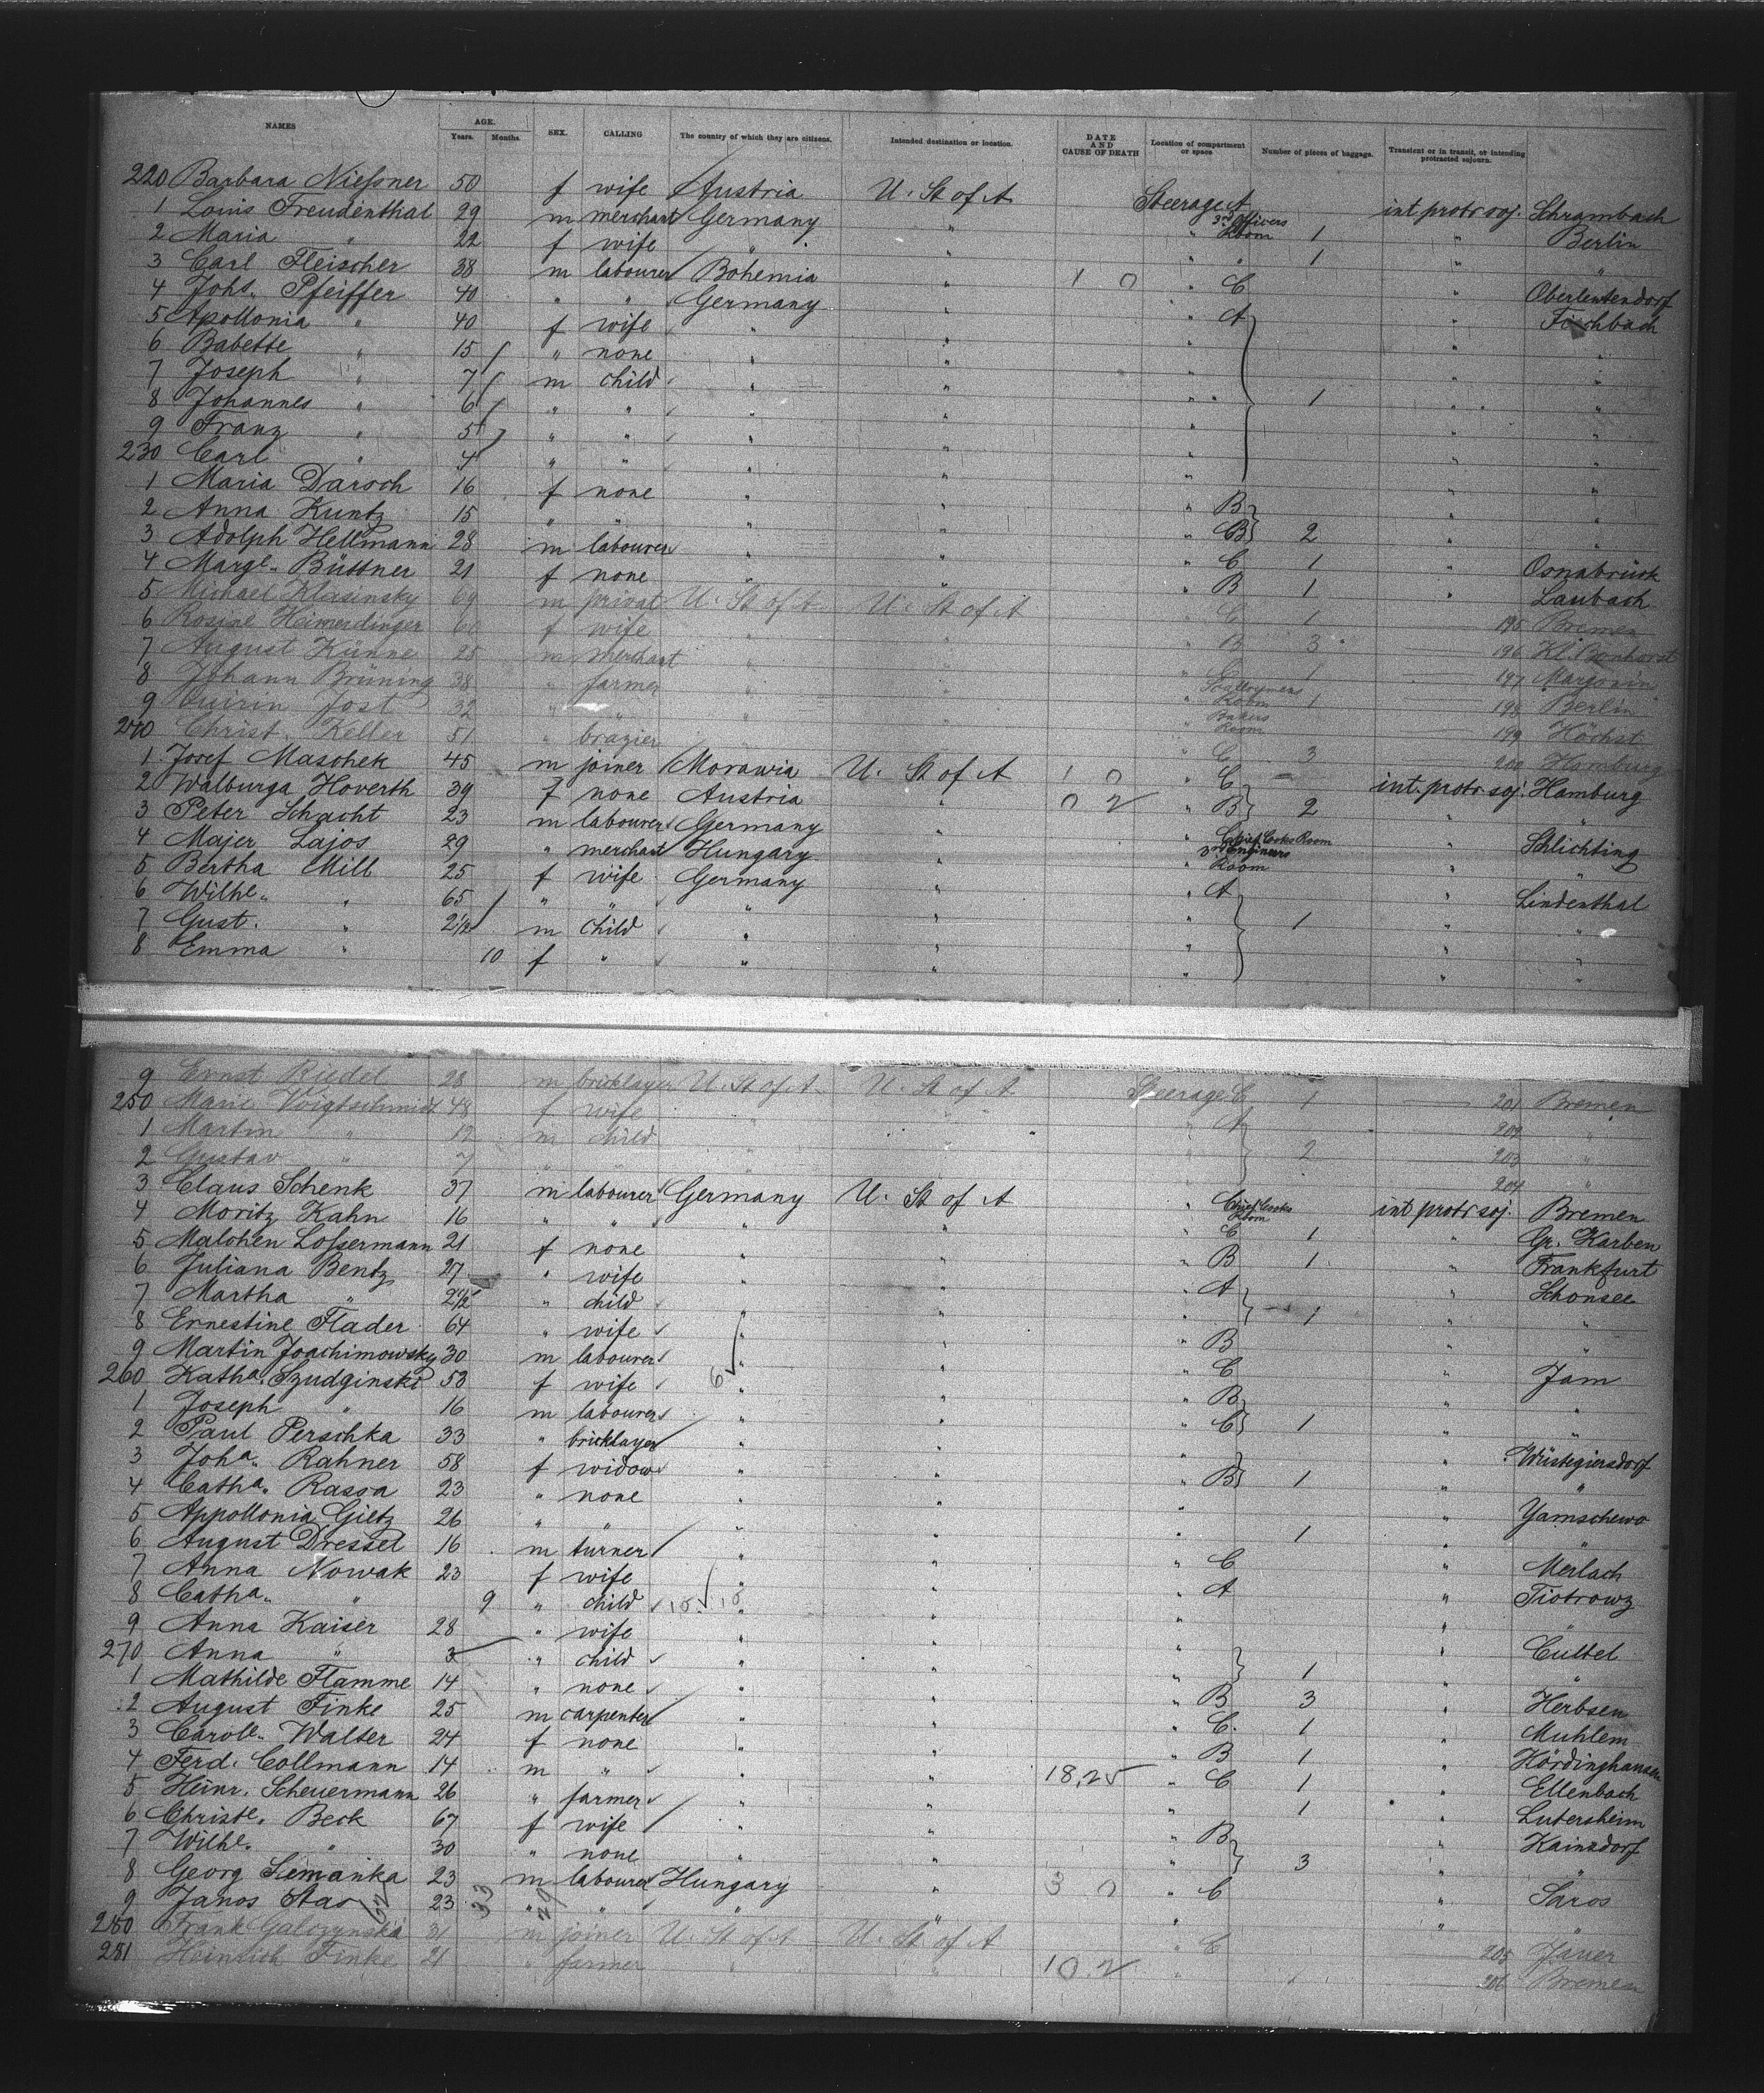 NAMES AGE. Years. Months. SEX. CALLING The country of which they are citizens. Intended destination or location. DATE AND CAUSE OF DEATH Location of compartment or space Number of pieces of baggage. Transient or in transit, or intending protracted sojourn.
220 Barbara Nießner 50 f wife Austria U. St of A Steerage A int protr soj. Schrambach
1 Louis Freudenthal 29 m merchant Germany " " 2nd Officers Room 1 " Berlin
2 Maria " 22 f wife " " " " 1 " "
3 Carl Fleischer 38 m labourer Bohemia " 1 0 " C " Oberleutendorf
4 Johs. Pfeiffer 40 " " Germany " " A " Fischbach
5 Apollonia " 40 f wife " " " " "
6 Babette " 15 " none " " " " "
7 Joseph " 7 m child " " " " "
8 Johannes " 6 " " " " " 1 " "
9 Franz " 5 " " " " " " "
230 Carl " 4 " " " " " " "
1 Maria Darsch 16 f none " " " B " "
2 Anna Kuntz 15 " " " " " B 2 " "
3 Adolph Hellmann 28 m labourer " " " C 1 " Osnabrück
4 Margt. Büttner 21 f none " " " B 1 " Laubach
5 Michael Klasinsky 69 m privat U. St of A U. St of A " C 1 195 Bremen
6 Rosine Heimerdinger 60 f wife " " " B 3 196 Kl. Bonhorst
7 August Künne 25 m merchant " " " C 1 197 Margonin
8 Johann Brüning 38 " farmer " " " Room 1 198 Berlin
9 Quirin Jost 32 " " " " " Bakers Room 199 Höchst
240 Christ. Keller 51 " brazier " " " C 3 200 Homburg
1 Josef Maschek 45 m joiner Morawia U. St of A 1 0 " C int. protr soj. Hamburg
2 Walburga Hoverth 39 f none Austria " 0 2 " B 2 " "
3 Peter Schacht 23 m labourer Germany " " Chief Cooks Room " Schlichting
4 Majer Lajos 29 " merchant Hungary " 3rd Engineers Room " "
5 Bertha Mill 25 f wife Germany " " A " Lindenthal
6 Wilhe. " 65 " " " " " " "
7 Gust. " 2½ m child " " " 1 " "
8 Emma " 10 f " " " " " "
9 Ernst Riedel 28 m bricklayer U. St of A U. St of A Steerage C 1 201 Bremen
250 Marie Voigtschmidt 48 f wife " " " A 202 "
1 Martin " 12 m child " " " 2 203 "
2 Gustav " 7 " " " " " 204 "
3 Claus Schenk 37 m labourer Germany U. St of A " Chief Cooks Room int protr soj. Bremen
4 Moritz Kahn 16 " " " " " C 1 " Gr. Karben
5 Malchen Loßermann 21 f none " " " B 1 " Frankfurt
6 Juliana Bentz 27 " wife " " " A " Schonsee
7 Martha " 2½ " child " " " 1 " "
8 Ernestine Flader 64 " wife " " " B " "
9 Martin Joachimowsky 30 m labourer " " " C " Jam
260 Katha. Szudginski 53 f wife " " " B " "
1 Joseph " 16 m labourer " " " C 1 " "
2 Paul Perschka 33 " bricklayer " " " " Wüstegiersdorf
3 Joha. Rahner 58 f widow " " " B 1 " "
4 Catha. Rassa 23 " none " " " " Yamschewo
5 Appollonia Gietz 26 " " " " " 1 " "
6 August Dressel 16 m turner " " " C " Merlach
7 Anna Nowak 23 f wife " " " A " Tiotrowz
8 Catha. " 9 " child " " " " "
9 Anna Kaiser 28 " wife " " " " Cultel
270 Anna " 3 " child " " " 1 " "
1 Mathilde Flamme 14 " none " " " B 3 " Herbsen
2 August Finke 25 m carpenter " " " C. 1 " Muhlem
3 Carole. Walter 24 f none " " " B 1 " Hördinghausen
4 Ferd. Collmann 14 m " " " 18,25 " C 1 " Ellenbach
5 Heinr. Scheuermann 26 " farmer " " " 1 " Lutersheim
6 Christe. Beck 67 f wife " " " B " Kainsdorf
7 Wilhe. " 30 " none " " " 3 " "
8 Georg Semanka 23 m labourer Hungary " 3 0 " C " Saros
9 Janos Stas 23 " " " " " " "
280 Frank Galczynski 31 m joiner U. St of A U. St of A " C 205 Jauer
281 Heinrich Finke 21 " farmer " " 10.2 " " 206 Bremen